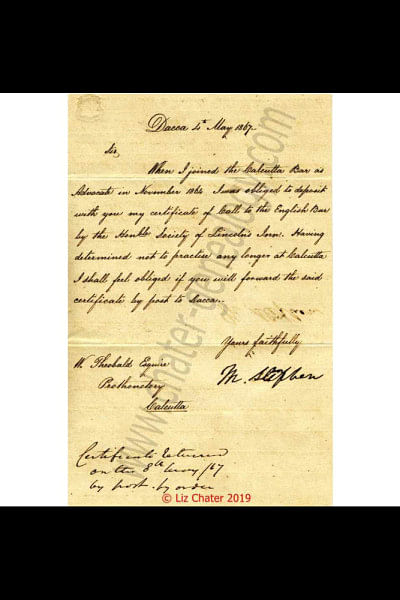 Dacca 4th May 1867
Sir,
When I joined the Calcutta Bar as
Advocate in November 1864 I was obliged to deposit
with you my certificate of Call to the English Bar
by the Honble Society of Lincoln's Inn. Having
determined not to practise any longer at Calcutta
I shall feel obliged if you will forward the said
certificate by post to Dacca.
Yours faithfully
M. Stephen
W. Theobald Esquire
Prothonotary
Calcutta
Certificate Returned
on the 8th /67
by post by order
© Liz Chater 2019
www.chater-genealogy.com